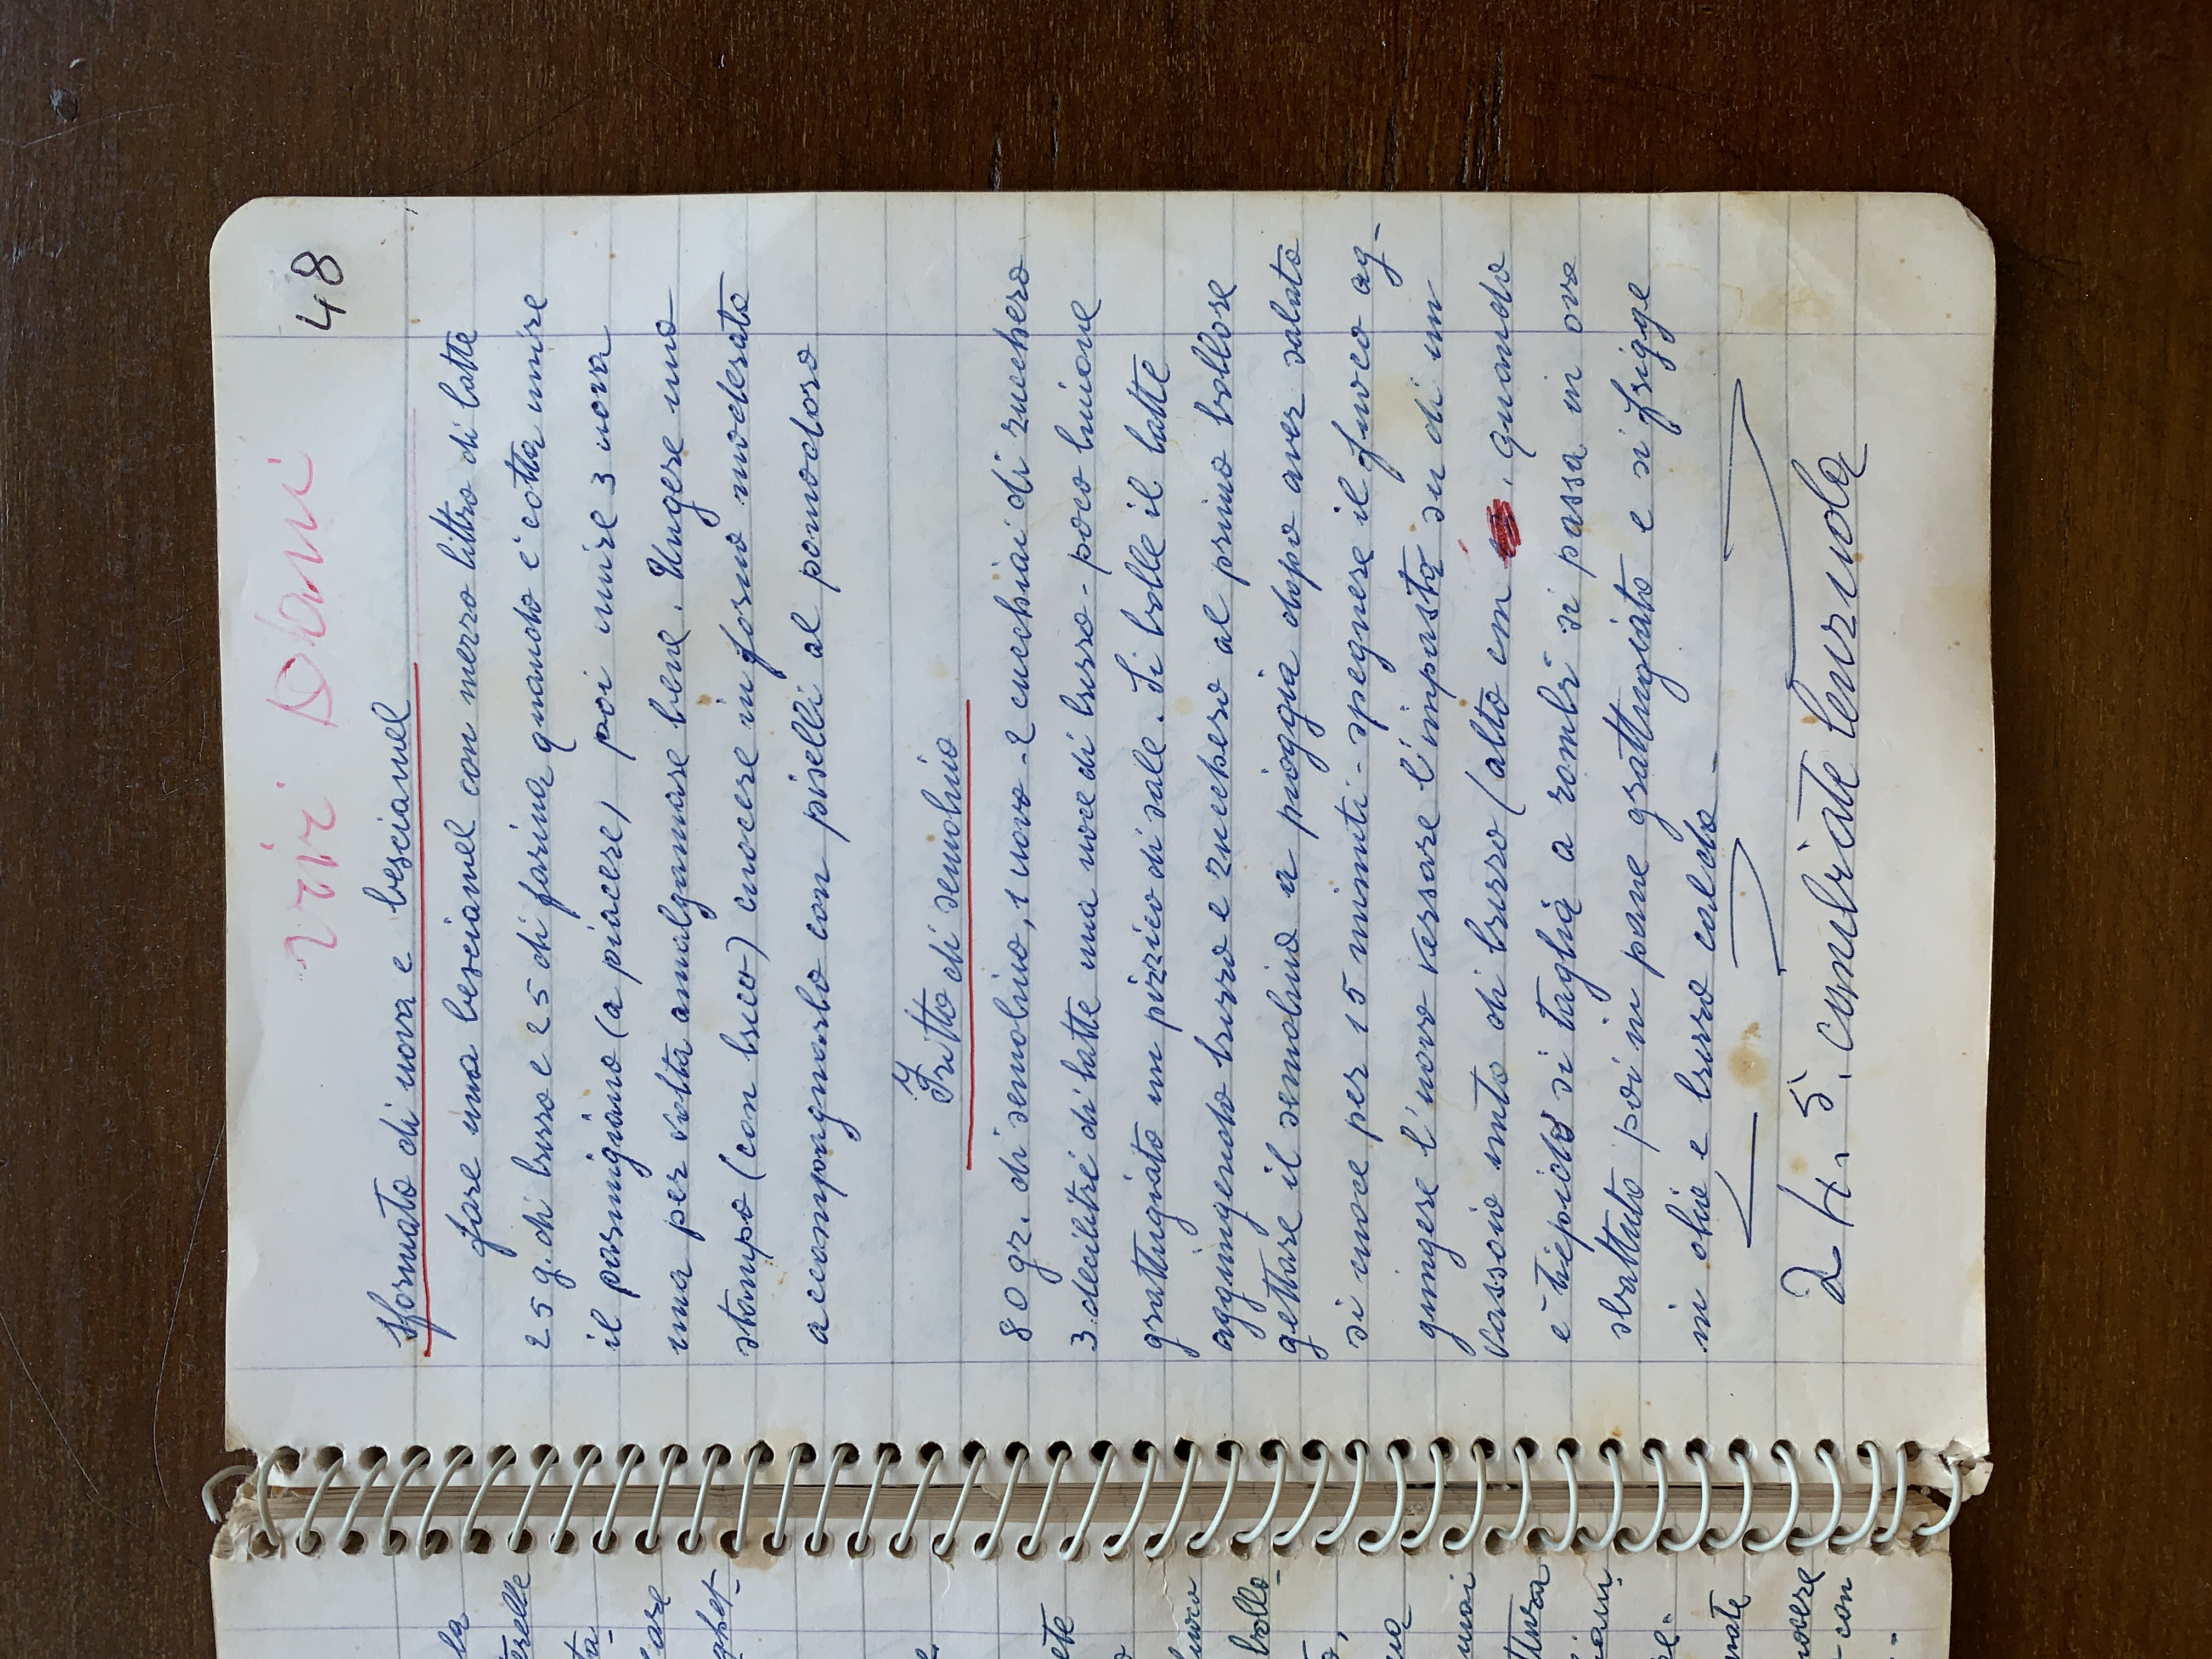 la
erelle
ta-
are
ghet-
ete
fuoco
bollo-
mai
ttura
iam-
re.
nate
uocere
con
vivi Dani
48
Sformato di uova e besciamel
fare una besciamel con mezzo littro di latte
25 g. di burro e 25 di farina quando e' cotta unire
il parmigiano (a piacere) poi unire 3 uova
una per volta amalgamare bene. Ungere uno
stampo (con buco) cuocere in forno moderato
accompagnarlo con piselli al pomodoro
Fritto di semolino
80 gr. di semolino, 1 uovo - 2 cucchiai di zucchero
3. decilitri di latte una noce di burro - poco limone
grattugiato un pizzico di sale. Si bolle il latte
aggiungendo burro e zucchero al primo bollore
gettare il semolino a pioggia dopo aver salato
si cuoce per 15 minuti - spegnere il fuoco ag-
giungere l'uovo versare l'impasto su di un
vassoio unto di burro (alto cm . quando
e' tiepido si taglia a rombi si passa in ovo
sbattuto poi in pane grattugiato e si frigge
in olio e burro caldo -
24. 5. cambiate lenzuola